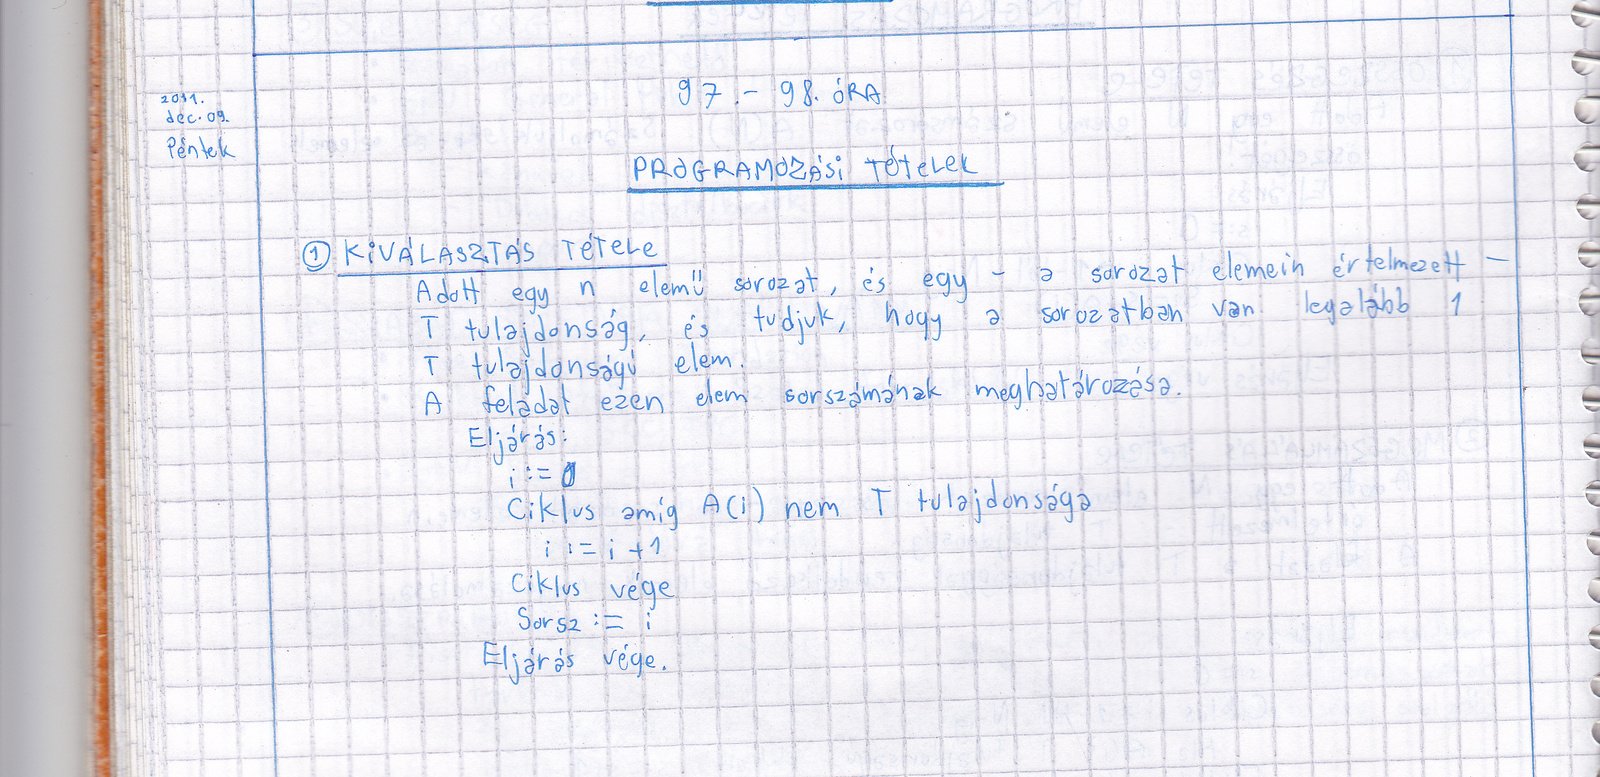 97.-98. ÓRA
2011.
dec. 09.
Péntek
PROGRAMOZÁSI TÉTELEK
① KIVÁLASZTÁS TÉTELE
Adott egy n elemű sorozat, és egy - a sorozat elemein értelmezett -
T tulajdonság, és tudjuk, hogy a sorozatban van legalább 1
T tulajdonságú elem.
A feladat ezen elem sorszámának meghatározása.
Eljárás:
i := 0
Ciklus amíg A(i) nem T tulajdonsága
i := i + 1
Ciklus vége
Sorsz := i
Eljárás vége.